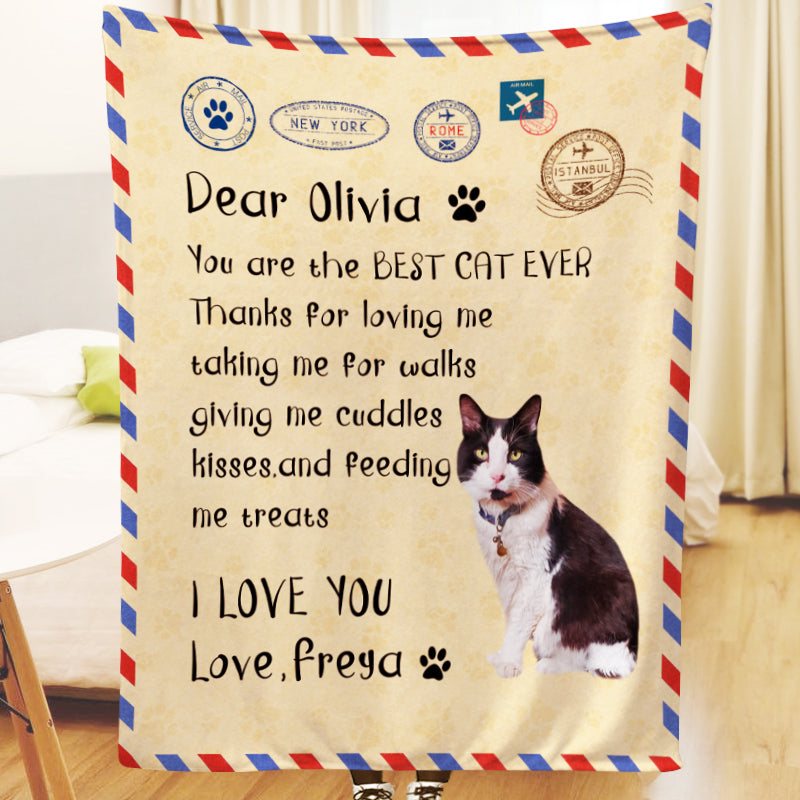 AIR MAIL
POST
SERVICE
UNITED STATES POSTAGE
NEW YORK
FAST POST
ROME
AIR MAIL
ISTANBUL
Dear Olivia
You are the BEST CAT EVER
Thanks for loving me
taking me for walks
giving me cuddles
kisses,and feeding
me treats
I LOVE YOU
Love,Freya